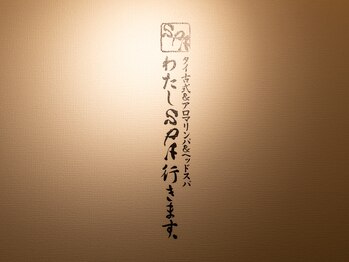 SPA
タイ古式&アロマリンパ&ヘッドスパ
わたしSPA行きます。